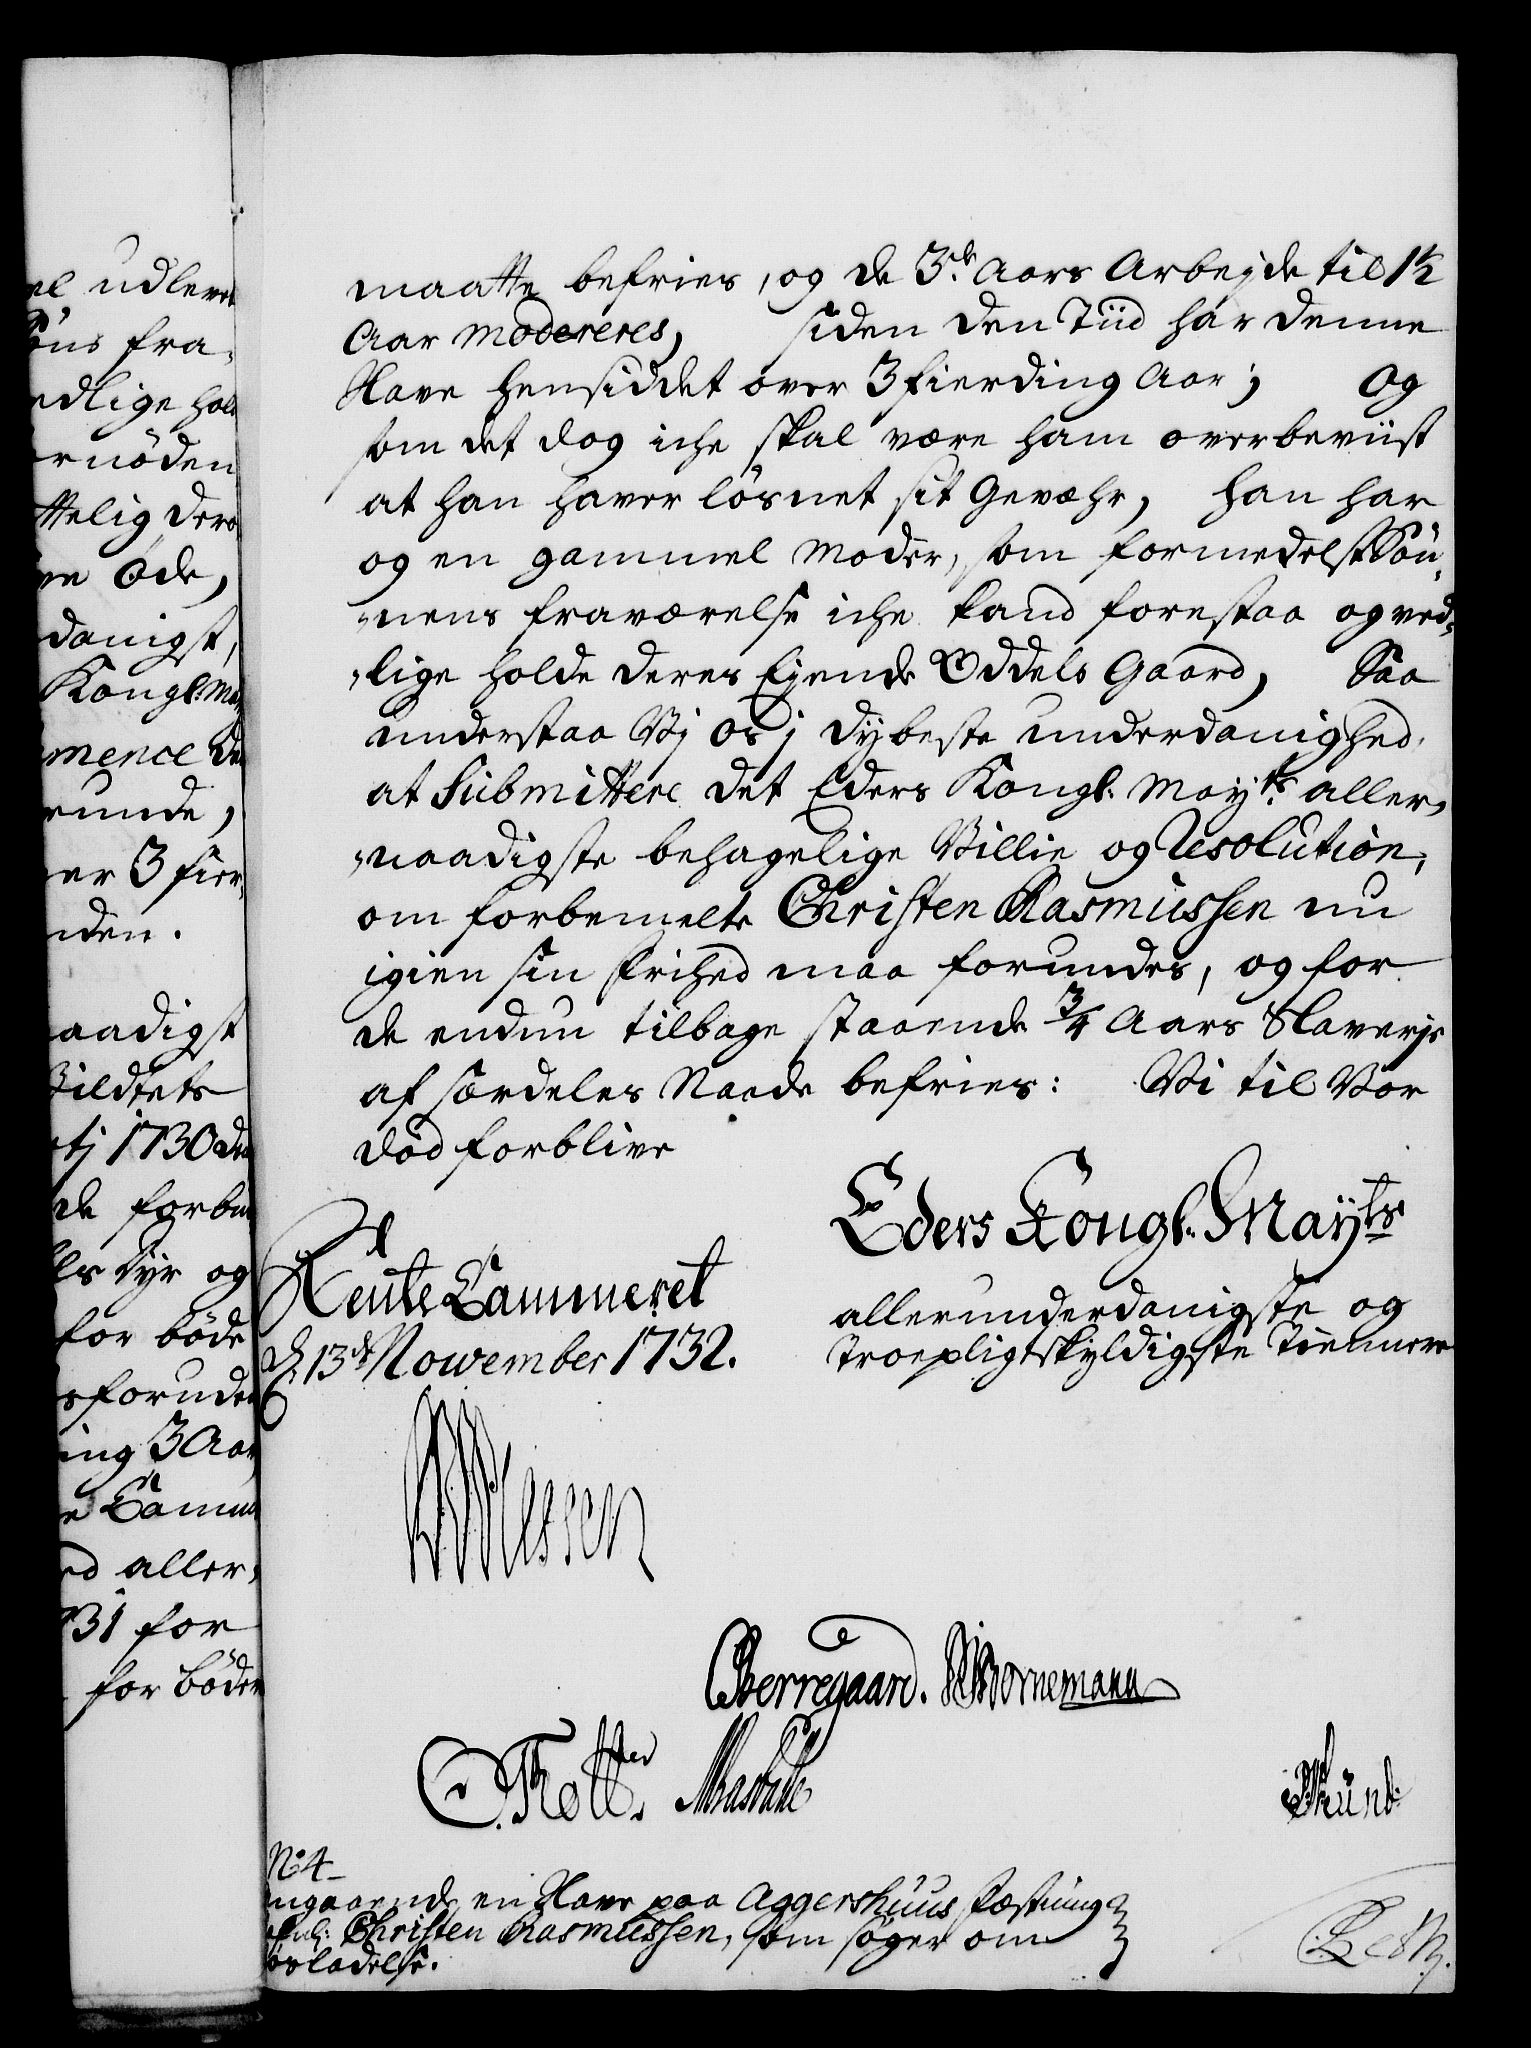 el udlever
öns fra-
edlige hol
rnöden
ttelig der
en Øde,
danigst,
Kongl: May
mence de
runde,
er 3 fier
nden.
aadigst
Bildtets
tj 1730 de
de forbe
ls Dyr og
for böde
s foruden
ing 3 Aar
e Camm
ed aller-
31 for
for böder
maatte befries, og de 3de Aars Arbejde til 1½
Aar modereres, siden den Tiid har denne
Slave hensiddet over 3 fierding Aar; Og
som det dog iche skal være ham overbeviist
at han haver lösnet sit Gevæhr, han har
og en gammel Moder, som formedelst Sön-
-nens fraværelse iche kand forestaa og ved-
-lige holde deres Ejende Oddels Gaard, Saa
understaa Vj os j dybeste underdanighed,
at Submittere det Eders Kongl: Mayts aller-
-naadigste behagelige Villie og Resolution,
om forbemelte Christen Rasmussen nu
igien sin Frihed maa forundes, og for
de endnu tilbage staaende 3/4 Aars Slaverje
af særdeles Naade befries: Vi til Vor
död forblive
Eders Kongl: Maÿts
Rente Cammeret
d. 13de Nowember 1732.
allerunderdanigste og
Troepligtskyldigste Tiennere
Plessen
CBerregaard. Bornemann
N: 4
angaaende en Slave paa Aggershuus Fæstning
Christen Rasmussen, som söger om
lösladelse.